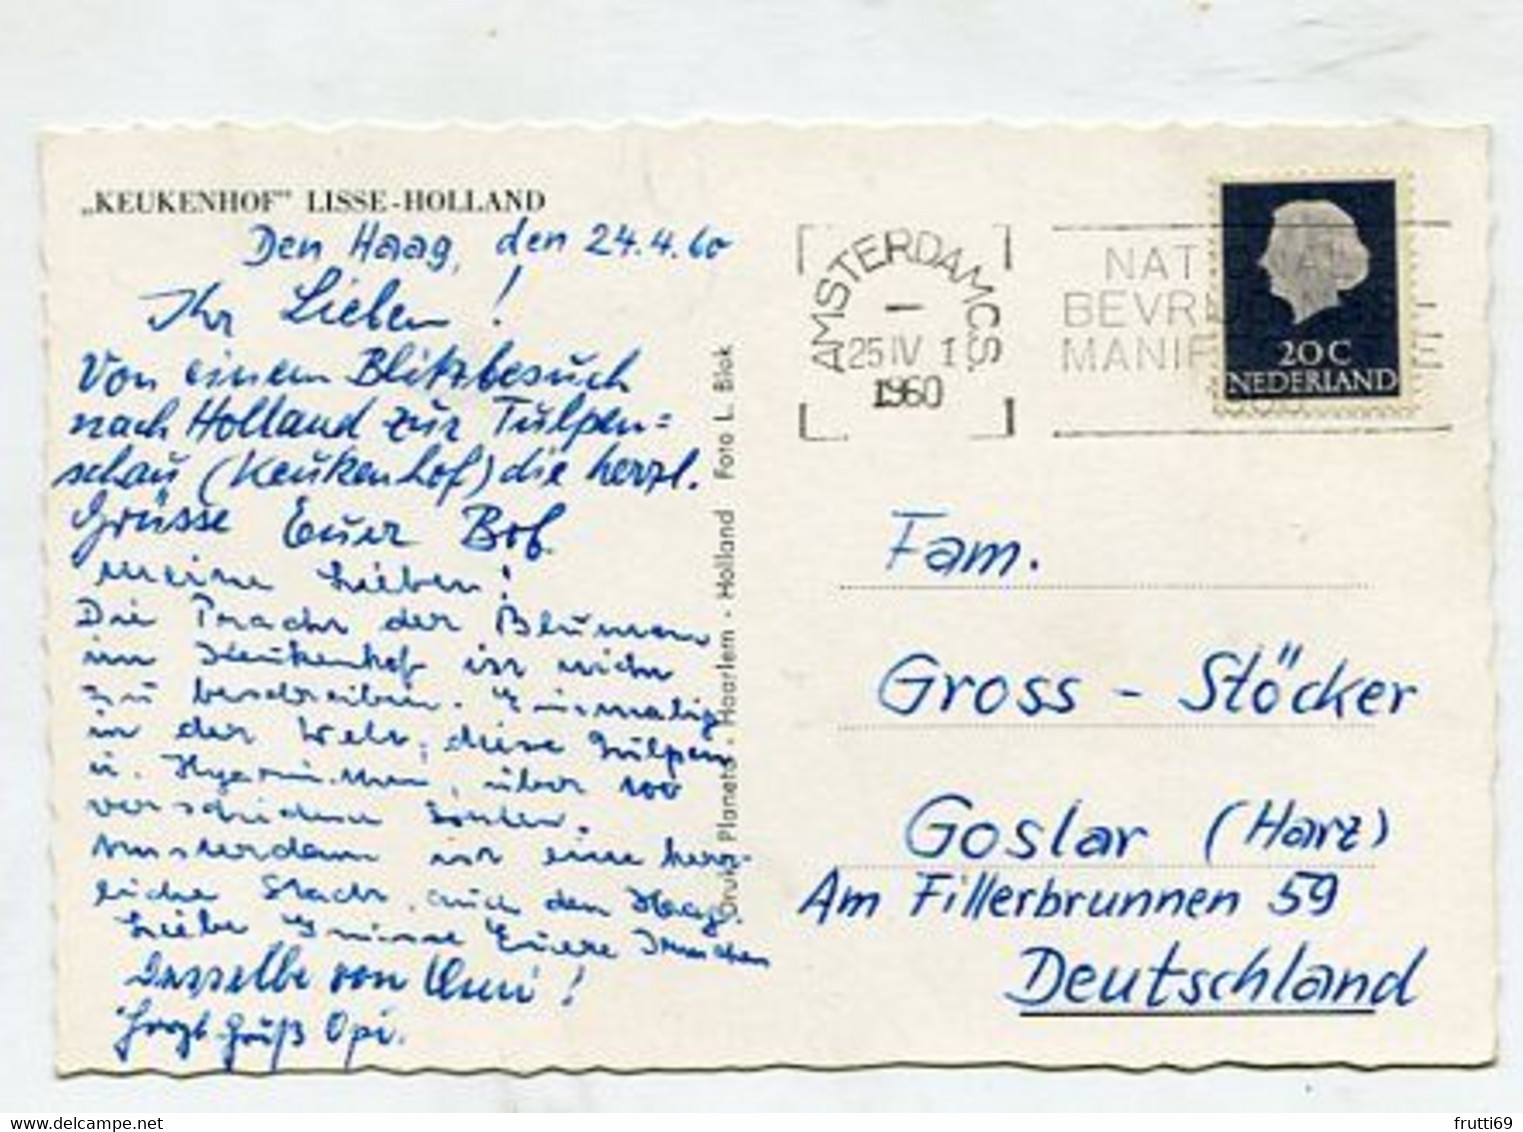 „KEUKENHOF” LISSE-HOLLAND
Den Haag, den 24.4.60
Ihr Lieben!
Von einem Blitzbesuch
nach Holland zur Tulpen=
schau (Keukenhof) die herzl.
Grüsse Euer Bob.
Meine Lieben!
Die Pracht der Blumen
im Keukenhof ist nicht
zu beschreiben. Einmalig
in der Welt, diese Tulpen
u. Hyazinthen, über 100
verschiedene Sorten.
Amsterdam ist eine herr-
liche Stadt, auch den Haag.
Liebe Grüsse Euere
Desselbe von Omi!
Herzl. Gruß Opi.
Druk Planeta - Haarlem - Holland Foto L. Blok
AMSTERDAM C.S.
25 IV 1
1960
NAT
BEVR
MANIF
20 C
NEDERLAND
Fam.
Gross - Stöcker
Goslar (Harz)
Am Fillerbrunnen 59
Deutschland
delcampe.net
frutti69